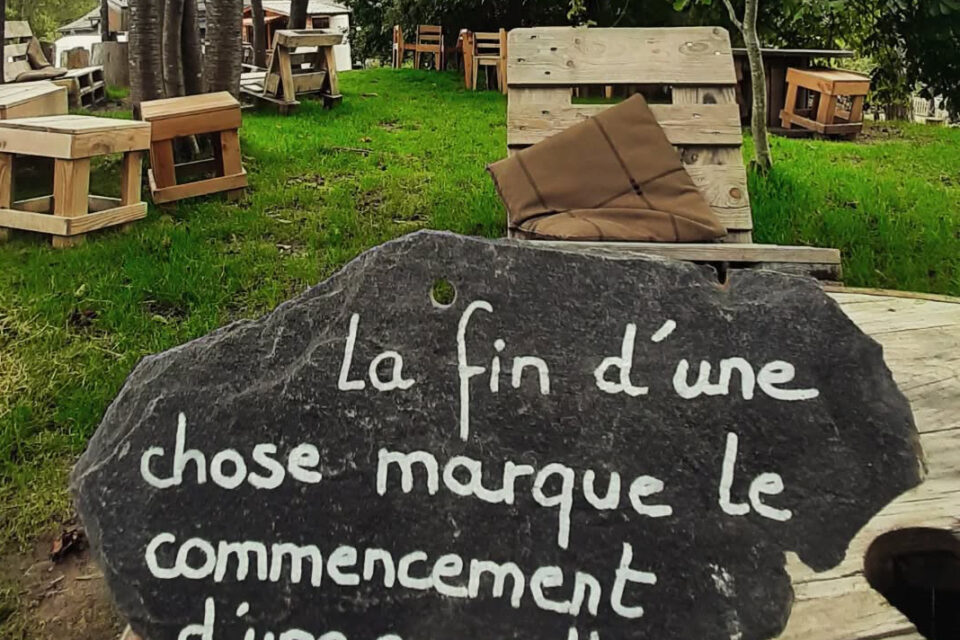 La fin d'une
chose marque le
commencement
d'une